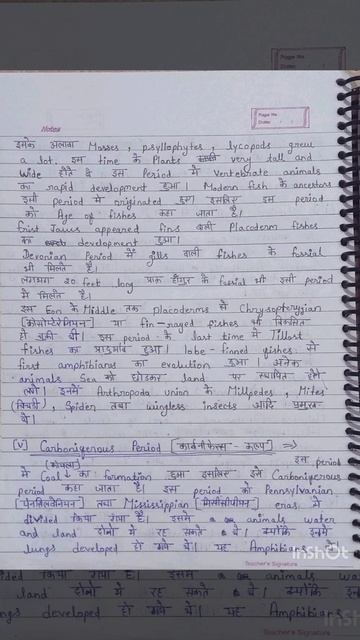 Page No.
Date:
Notes
Page No.
Date:
इसके अलावा Mosses, psyllophytes, lycopods grew
a lot. इस time के Plants very tall and
wide होते थे इस Period में vertebrate animals
का rapid development हुआ। Modern fish के ancestors
इसी period में originated हुए इसलिए इस period
को Age of fishes कहा जाता है।
Frist Jaws appeared fins वाली Placoderm fishes
का development हुआ।
Devonian Period में gills वाली fishes के fossial
भी मिलते हैं।
लगभग 20 feet long के fossial भी इसी period
में मिलते हैं।
इस Eon के Middle तक placoderms से Chrysopterygian
या fin-rayed fishes भी विकसित
हो चुकी थी। इस period के last time में Tillost
fishes का प्रादुर्भाव हुआ। lobe-finned fishes से
first amphibians का evaluation हुआ। अनेक
animals Sea को छोड़कर land पर स्थापित होने
लगे। इनमें Arthropoda union के Millpedes, Mites
, Spider तथा wingless insects आदि प्रमुख
थे।
(v) Carboniferous Period [कार्बनीफेरस - कल्प] ⇒
(कोयला) इस period
में Coal ↓ का formation हुआ इसलिए इसे Carboniferous
period कहा जाता है। इस period को Pennsylvanian
[पेनसिलवेनियन] तथा Mississippian [मिसीसीपियन] eras में
divided किया गया है। इसमें animals water
and land दोनों में रह सकते थे। क्योंकि इनमें
lungs developed हो गये थे। यह Amphibians थे।
InShot
Teacher's Signature